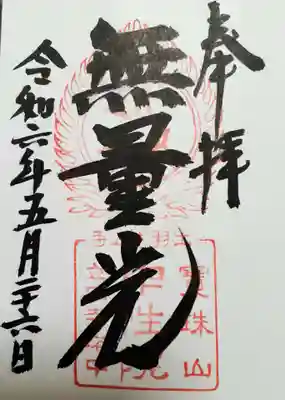 奉拝
無量光
令和六年五月二十六日
寶珠山